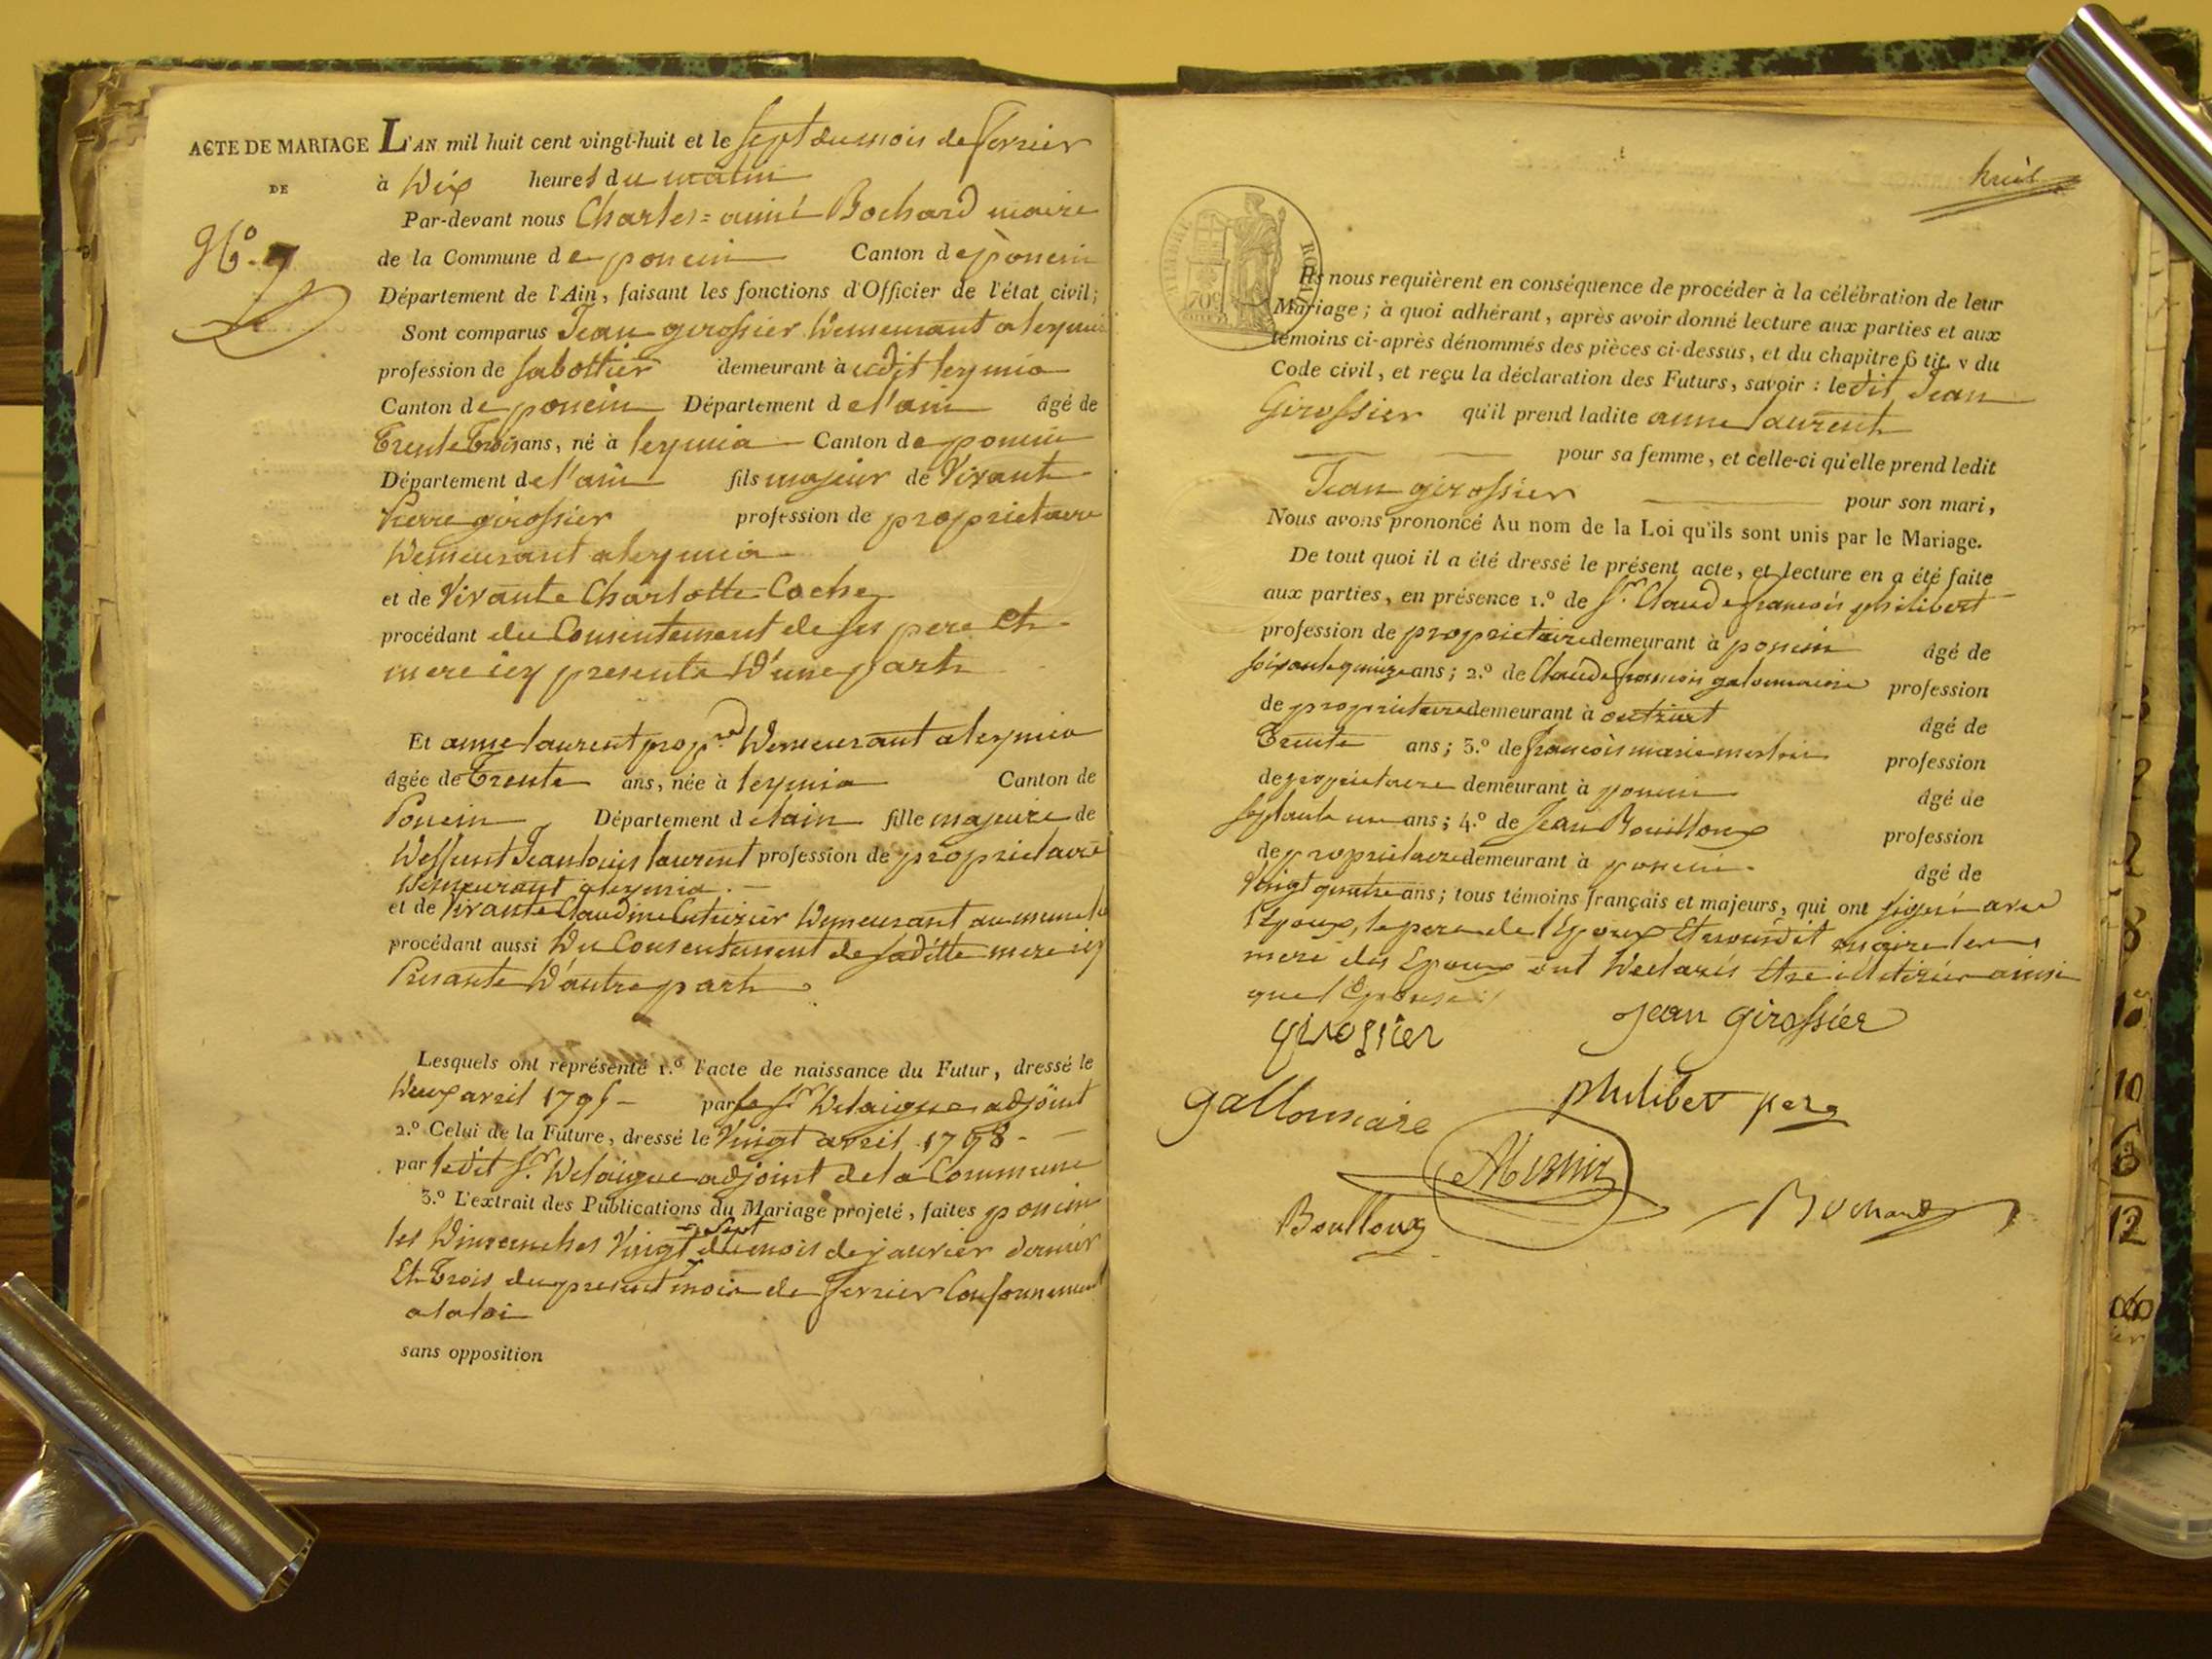 ACTE DE MARIAGE
DE
N.º 7
L'AN mil huit cent vingt-huit et le sept du mois de fevrier
à Dix heures du matin
Par-devant nous Charles=aimé Bochard maire
de la Commune de poncin Canton de poncin
Département de l'Ain, faisant les fonctions d'Officier de l'état civil;
Sont comparus Jean girossier Demeurant a leymia
profession de sabottier demeurant à udit leymia
Canton de poncin Département de l'ain âgé de
Trente trois ans, né à leymia Canton de poncin
Département de l'ain fils majeur de Vivant
Pierre girossier profession de proprietaire
Demeurant a leymia
et de Vivante Charlotte Coche
procédant du Consentement de ses pere et
mere icy presents D'une part
Et anne laurent prop.re Demeurant a leymia
âgée de Trente ans, née à leymia Canton de
Poncin Département de lain fille majeure de
Deffunt Jean louis laurent profession de proprietaire
Demeurant a leymia.
et de Vivante Claudine Demeurant au meme
procédant aussi Du Consentement de saditte mere icy
Presante D'autre part
Lesquels ont représenté 1.º l'acte de naissance du Futur, dressé le
Deux avril 1795 par le Sr Delaigue adjoint
2.º Celui de la Future, dressé le Vingt avril 1798
par ledit Sr. Delaigue adjoint de la Commune
3.º L'extrait des Publications du Mariage projeté, faites poncin
les Dimanches Vingt sept du mois de janvier dernier
Et Trois du present mois de fevrier Conformement
a la loi
sans opposition
huit
TIMBRE ROYAL
70c
Ils nous requièrent en conséquence de procéder à la célébration de leur
Mariage; à quoi adhérant, après avoir donné lecture aux parties et aux
témoins ci-après dénommés des pièces ci-dessus, et du chapitre 6 tit. v du
Code civil, et reçu la déclaration des Futurs, savoir: ledit Jean
Girossier qu'il prend ladite anne laurent
pour sa femme, et celle-ci qu'elle prend ledit
Jean girossier pour son mari,
Nous avons prononcé Au nom de la Loi qu'ils sont unis par le Mariage.
De tout quoi il a été dressé le présent acte, et lecture en a été faite
aux parties, en présence 1.º de Sr. Claude francois philibert
profession de proprietaire demeurant à poncin âgé de
soixante quinze ans; 2.º de Claude francois galonnaire profession
de proprietaire demeurant à âgé de
Trente ans; 3.º de francois marie profession
de proprietaire demeurant à poncin âgé de
septante un ans; 4.º de Jean Bouilloux profession
de proprietaire demeurant à poncin. âgé de
Vingt quatre ans; tous témoins français et majeurs, qui ont signé avec
l'Epoux, le pere de l'Epoux Et nousdit maire les
mere des Epoux ont Declarés Etre illitirés ainsi
que l'Epouse
girossier
jean girossier
gallonnaire
philibet pere
Boulloux
Bochard
10
12